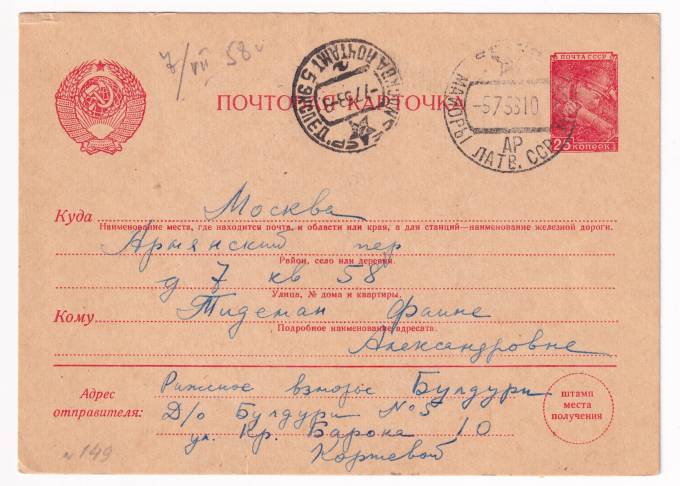 7/VII 58 г
ПОЧТОВАЯ КАРТОЧКА
МОСКВА ПОЧТАМТ 5 ЭКСПЕД.
МАЙОРЫ ЛАТВ. ССР
АР
-575810
ПОЧТА СССР
25 КОПЕЕК
Куда Москва
Наименование места, где находится почта, и области или края, а для станций—наименование железной дороги.
Армянский пер
Район, село или деревня.
д 7 кв 58
Улица, № дома и квартиры.
Кому Тидеман Фаине
Подробное наименование адресата.
Александровне
Адрес отправителя: Рижское взморье Булдури
Д/о Булдури № 5
ул. Кр. Барона 10
Коржевой
штамп места получения
N 149